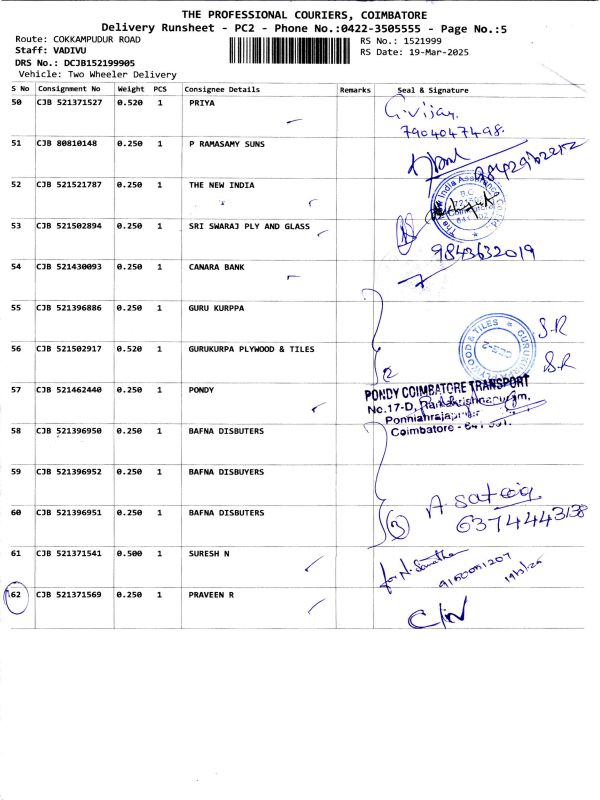 THE PROFESSIONAL COURIERS, COIMBATORE
Delivery Runsheet - PC2 - Phone No.:0422-3505555 - Page No.:5
Route: COKKAMPUDUR ROAD
RS No.: 1521999
Staff: VADIVU
RS Date: 19-Mar-2025
DRS No.: DCJB152199905
Vehicle: Two Wheeler Delivery
S No Consignment No Weight PCS Consignee Details Remarks Seal & Signature
50 CJB 521371527 0.520 1 PRIYA G.vijay.
7904047498.
51 CJB 80810148 0.250 1 P RAMASAMY SUNS
52 CJB 521521787 0.250 1 THE NEW INDIA
53 CJB 521502894 0.250 1 SRI SWARAJ PLY AND GLASS
9843632019
54 CJB 521430093 0.250 1 CANARA BANK
55 CJB 521396886 0.250 1 GURU KURPPA
S.R
56 CJB 521502917 0.520 1 GURUKURPA PLYWOOD & TILES
2 S.R
57 CJB 521462440 0.250 1 PONDY
PONDY COIMBATORE TRANSPORT
No.17-D,
Coimbatore - 641 001.
58 CJB 521396950 0.250 1 BAFNA DISBUTERS
59 CJB 521396952 0.250 1 BAFNA DISBUYERS
A. sateeiq
60 CJB 521396951 0.250 1 BAFNA DISBUTERS
3 6374443138
61 CJB 521371541 0.500 1 SURESH N
62 CJB 521371569 0.250 1 PRAVEEN R